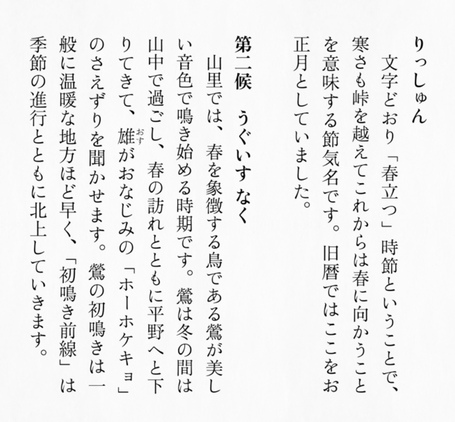 りっしゅん
文字どおり「春立つ」時節ということで、
寒さも峠を越えてこれからは春に向かうこと
を意味する節気名です。旧暦ではここをお
正月としていました。
第二候　うぐいす なく
山里では、春を象徴する鳥である鶯が美し
い音色で鳴き始める時期です。鶯は冬の間は
山中で過ごし、春の訪れとともに平野へと下
りてきて、雄がおなじみの「ホーホケキョ」
おす
のさえずりを聞かせます。鶯の初鳴きは一
般に温暖な地方ほど早く、「初鳴き前線」は
季節の進行とともに北上していきます。